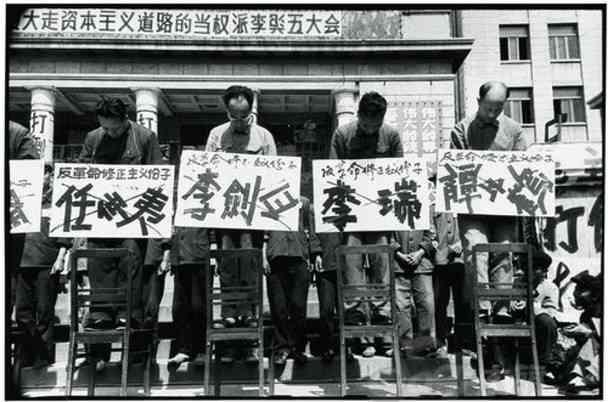 大走资本主义道路的当权派李 五大会
打倒
反革命修正主义份子
任仲夷
反革命修正主义份子
李剑白
反革命修正主义份子
李瑞
反革命修正主义份子
譚
打倒